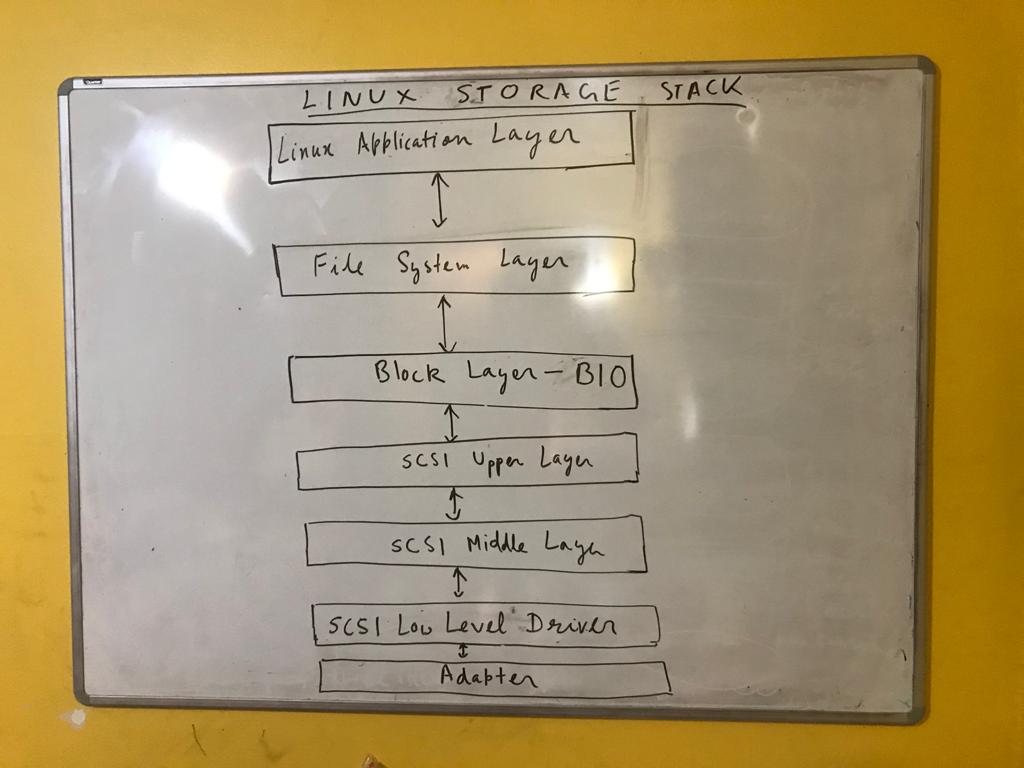 LINUX STORAGE STACK
Linux Application Layer
File System Layer
Block Layer - BIO
SCSI Upper Layer
SCSI Middle Layer
SCSI Low Level Driver
Adapter